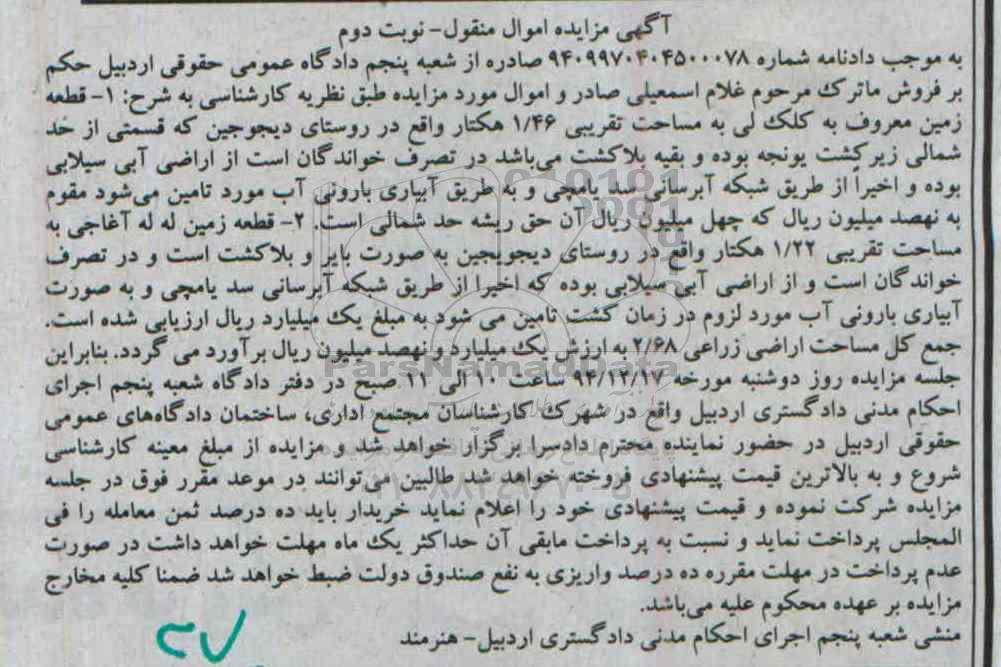 آگهی مزایده اموال منقول- نوبت دوم
به موجب دادنامه شماره ۹۴۰۹۹۷۰۴۰۴۵۰۰۰۷۸ صادره از شعبه پنجم دادگاه عمومی حقوقی اردبیل حکم
بر فروش ماترک مرحوم غلام اسمعیلی صادر و اموال مورد مزایده طبق نظریه کارشناسی به شرح: ۱- قطعه
زمین معروف به کلک لی به مساحت تقریبی ۱/۴۶ هکتار واقع در روستای دیجوجین که قسمتی از حد
شمالی زیر کشت یونجه بوده و بقیه بلاکشت می‌باشد در تصرف خواندگان است از اراضی آبی سیلابی
بوده و اخیراً از طریق شبکه آبرسانی سد یامچی و به طریق آبیاری بارونی آب مورد تامین می‌شود مقوم
به نهصد میلیون ریال که چهل میلیون ریال آن حق ریشه حد شمالی است. ۲- قطعه زمین له له آغاجی به
مساحت تقریبی ۱/۲۲ هکتار واقع در روستای دیجویجین به صورت بایر و بلاکشت است و در تصرف
خواندگان است و از اراضی آبی سیلابی بوده که اخیرا از طریق شبکه آبرسانی سد یامچی و به صورت
آبیاری بارونی آب مورد لزوم در زمان کشت تامین می شود به مبلغ یک میلیارد ریال ارزیابی شده است.
جمع کل مساحت اراضی زراعی ۲/۶۸ به ارزش یک میلیارد و نهصد میلیون ریال برآورد می گردد. بنابراین
جلسه مزایده روز دوشنبه مورخه ۹۴/۱۲/۱۷ ساعت ۱۰ الی ۱۱ صبح در دفتر دادگاه شعبه پنجم اجرای
احکام مدنی دادگستری اردبیل واقع در شهرک کارشناسان مجتمع اداری، ساختمان دادگاه‌های عمومی
حقوقی اردبیل در حضور نماینده محترم دادسرا برگزار خواهد شد و مزایده از مبلغ معینه کارشناسی
شروع و به بالاترین قیمت پیشنهادی فروخته خواهد شد طالبین می‌توانند در موعد مقرر فوق در جلسه
مزایده شرکت نموده و قیمت پیشنهادی خود را اعلام نماید خریدار باید ده درصد ثمن معامله را فی
المجلس پرداخت نماید و نسبت به پرداخت مابقی آن حداکثر یک ماه مهلت خواهد داشت در صورت
عدم پرداخت در مهلت مقرره ده درصد واریزی به نفع صندوق دولت ضبط خواهد شد ضمنا کلیه مخارج
مزایده بر عهده محکوم علیه می‌باشد.
منشی شعبه پنجم اجرای احکام مدنی دادگستری اردبیل- هنرمند
ParsNamadData